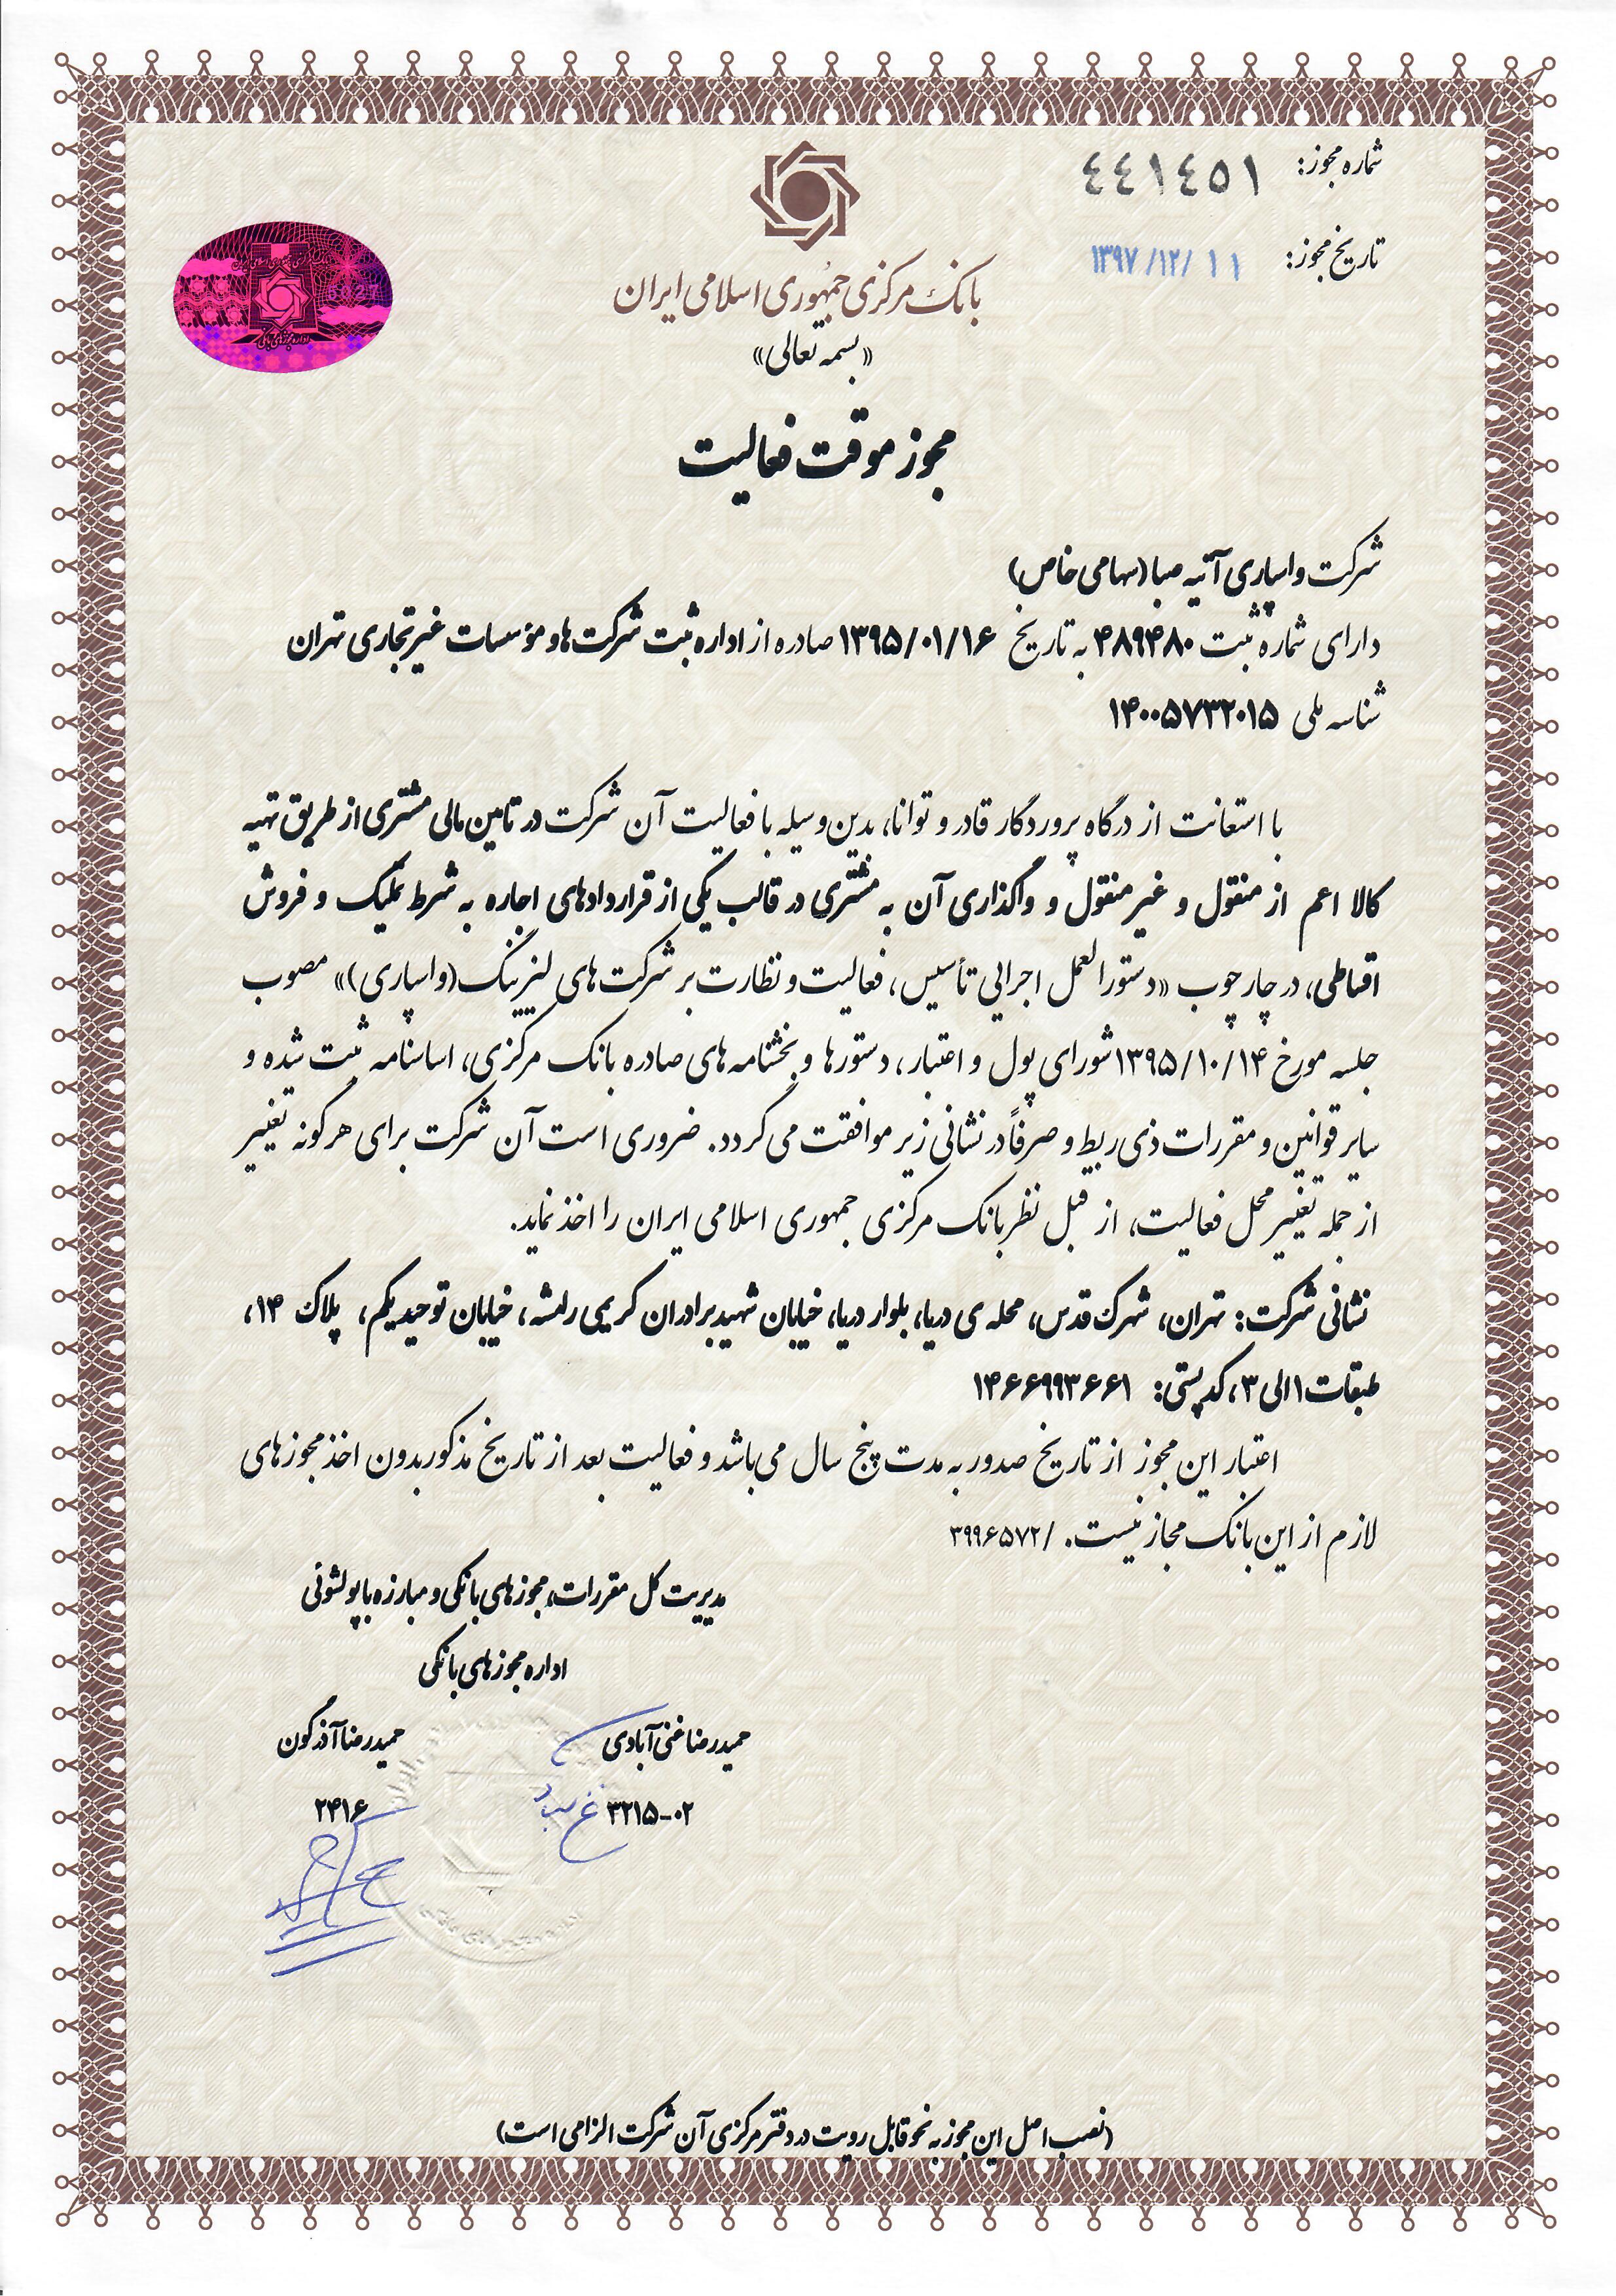 شماره مجوز: ٤٤١٤٥١
تاریخ مجوز: ۱۳۹۷/۱۲/۱۱
بانک مرکزی جمهوری اسلامی ایران
«بسمه تعالی»
مجوز موقت فعالیت
شرکت واسپاری آتیه صبا (سهامی خاص)
دارای شماره ثبت ۴۸۹۴۸۰ به تاریخ ۱۳۹۵/۰۱/۱۶ صادره از اداره ثبت شرکت‌ها و مؤسسات غیرتجاری تهران
شناسه ملی ۱۴۰۰۵۷۳۲۰۱۵
با استعانت از درگاه پروردگار قادر و توانا، بدین‌وسیله با فعالیت آن شرکت در تامین مالی مشتری از طریق تهیه
کالا اعم از منقول و غیرمنقول و واگذاری آن به مشتری در قالب یکی از قراردادهای اجاره به شرط تملیک و فروش
اقساطی، در چارچوب «دستورالعمل اجرایی تأسیس، فعالیت و نظارت بر شرکت‌های لیزینگ (واسپاری)» مصوب
جلسه مورخ ۱۳۹۵/۱۰/۱۴ شورای پول و اعتبار، دستورها و بخشنامه‌های صادره بانک مرکزی، اساسنامه ثبت شده و
سایر قوانین و مقررات ذی‌ربط و صرفاً در نشانی زیر موافقت می‌گردد. ضروری است آن شرکت برای هرگونه تغییر
از جمله تغییر محل فعالیت، از قبل نظر بانک مرکزی جمهوری اسلامی ایران را اخذ نماید.
نشانی شرکت: تهران، شهرک قدس، محله‌ی دریا، بلوار دریا، خیابان شهید برادران کریمی رلشه، خیابان توحید یکم، پلاک ۱۴،
طبقات ۱ الی ۳، کدپستی: ۱۴۶۶۹۹۳۶۶۱
اعتبار این مجوز از تاریخ صدور به مدت پنج سال می‌باشد و فعالیت بعد از تاریخ مذکور بدون اخذ مجوزهای
لازم از این بانک مجاز نیست. /۳۹۹۶۵۷۲
مدیریت کل مقررات، مجوزهای بانکی و مبارزه با پولشوئی
اداره مجوزهای بانکی
حمیدرضا غنی‌آبادی حمیدرضا آذرگون
۳۲۱۵-۰۲ ۲۴۱۶
(نصب اصل این مجوز به نحو قابل رویت در دفتر مرکزی آن شرکت الزامی است)